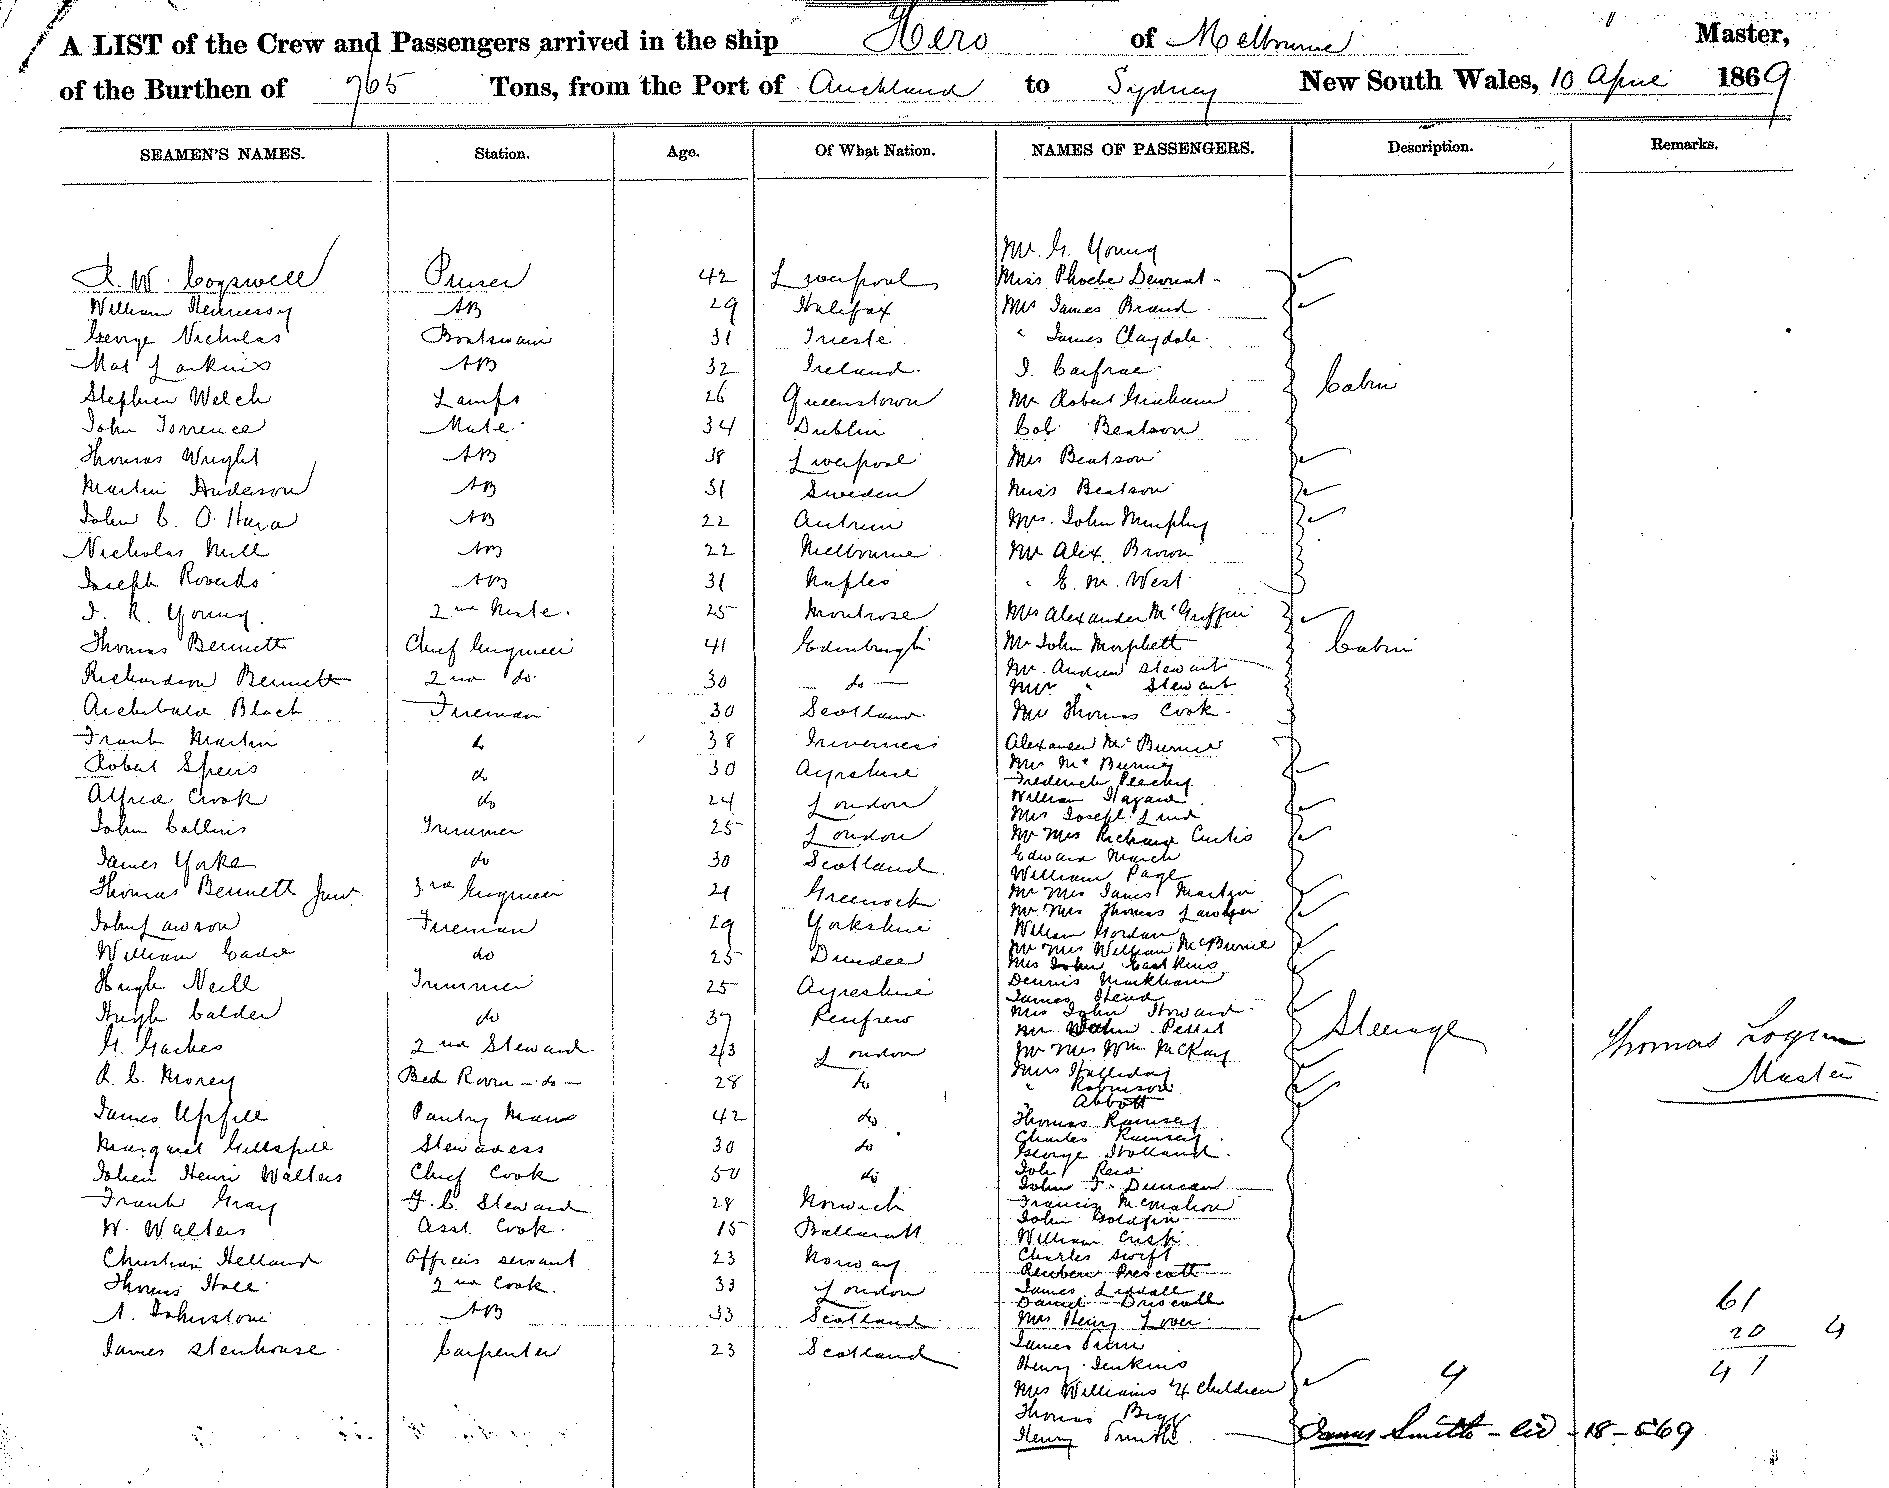 A LIST of the Crew and Passengers arrived in the ship Hero of Melbourne Master,
of the Burthen of 765 Tons, from the Port of Auckland to Sydney New South Wales, 10 April 1869
SEAMEN'S NAMES. Station. Age. Of What Nation. NAMES OF PASSENGERS. Description. Remarks.
Mr. G. Young
R. W. Cogswell Purser 42 Liverpool Miss Phoebe
William Hennessy AB 29 Halifax Mrs James Brand
George Nicholas Boatswain 31 Trieste " James Claydale
Mat Larkins AB 32 Ireland J. Carfrae
Stephen Welch Lamps 26 Queenstown Mr Robert Graham Cabin
John Torrence Mate 34 Dublin Col Beatson
Thomas Wright AB 38 Liverpool Mrs Beatson
Martin Anderson AB 31 Sweden Miss Beatson
John C. O'Hara AB 22 Antrim Mrs. John Murphy
Nicholas Mill AB 22 Melbourne Mr Alex. Brown
Joseph AB 31 Naples " E. M. West
J. R. Young 2nd Mate 25 Montrose Mrs Alexander McGriffin
Thomas Bennett Chief Engineer 41 Edinburgh Mr John Morphett Cabin
Richardson Bennett 2nd do 30 do Mr. Andrew Stewart
Mrs " Stewart
Archibald Black Fireman 30 Scotland Mr Thomas Cook
Frank Martin do 38 Inverness Alexander McBurnie
Robert Speirs do 30 Ayrshire Mrs McBurnie
Frederick
Alfred Crook do 24 London William
Mrs Joseph Lind
John Collins Trimmer 25 London Mr Mrs Richard Curtis
Edward March
James Yorke do 30 Scotland William Page
Thomas Bennett Junr 3rd Engineer 21 Greenock Mr Mrs James
Mr Mrs Thomas
John Lawson Fireman 29 Yorkshire William Gordon
William Eadie do 25 Dundee Mr Mrs William McBurnie
Mrs John
Hugh Neill Trimmer 25 Ayreshire Dennis Markham
James Head
Hugh Calder do 37 Renfrew Mrs John Howard
Mr Pettit Steerage
G. Gaches 2nd Steward 23 London Mr Mrs Wm McKay Thomas Logan
R. C. Morey Bed Room do 28 do Mrs Halliday Master
" Robinson
James Upfill Pantry Man 42 do Abbott
Thomas Ramsey
Margaret Gillespill Stewardess 30 do Charles Ramsey
George Holland
John Henri Walters Chief Cook 50 do Joh Reid
John F. Duncan
Frank Gray F. C. Steward 28 Norwich Francis McMahon
John Goldfin
W. Walters Asst. Cook 15 Ballaratt William Crisp
Christian Helland Officers servant 23 Norway Charles Swift
Reuben Prescott
Thomas Hall 2nd Cook 33 London James Liddall
Daniel Driscoll 61
A. Johnstone AB 33 Scotland Mrs Henry Lover 20 4
James Stenhouse Carpenter 23 Scotland James 41
Henry Jenkins
Mrs Williams 4 Children 4
Thomas Bigg
Henry Smith James Smith 18 69